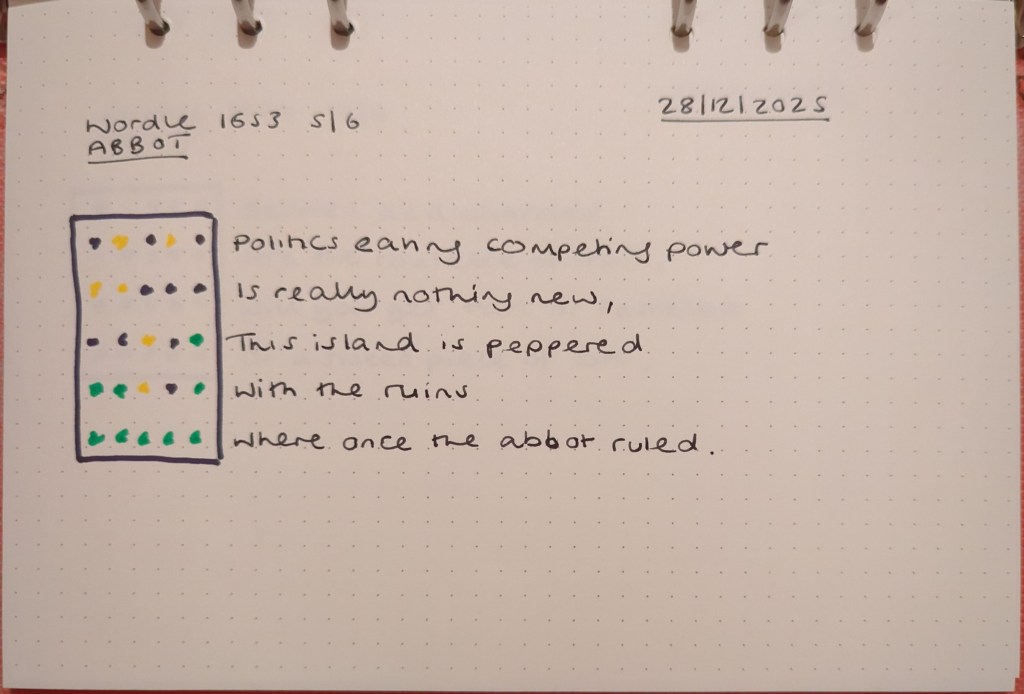 Wordle 1653 5/6
28/12/2025
ABBOT
Politics eating competing power
Is really nothing new,
This island is peppered
With the ruins
Where once the abbot ruled.